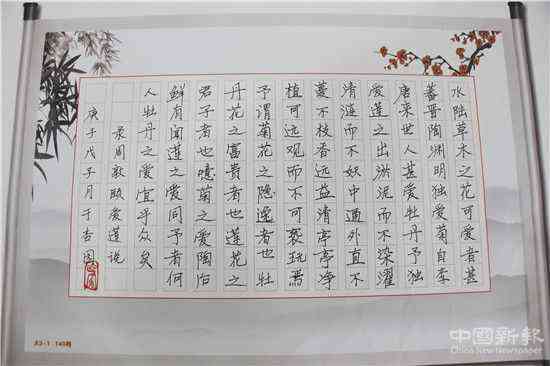 水陆草木之花可爱者甚
蕃晋陶渊明独爱菊自李
唐来世人甚爱牡丹予独
爱莲之出淤泥而不染濯
清涟而不妖中通外直不
蔓不枝香远益清亭亭净
植可远观而不可亵玩焉
予谓菊花之隐逸者也牡
丹花之富贵者也莲花之
君子者也噫菊之爱陶后
鲜有闻莲之爱同予者何
人牡丹之爱宜乎众矣
录周敦颐爱莲说
庚子戊子月于杏园
大3-1 140格
中國新報
China New Newspaper